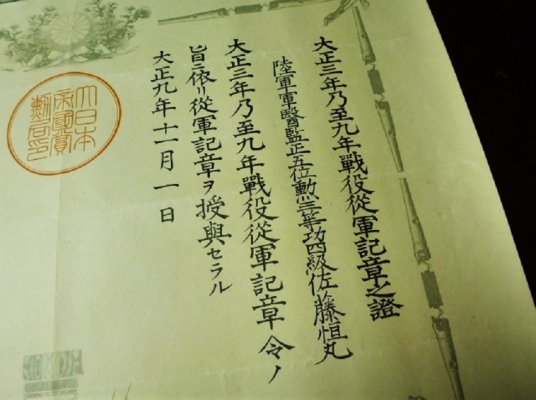 大正三年乃至九年戰役從軍記章之證
陸軍軍醫監正五位勲三等功四級佐藤恒丸
大正三年乃至九年戰役從軍記章令ノ
旨ニ依リ從軍記章ヲ授與セラル
大正九年十一月一日
大日本
帝國賞
勲局印